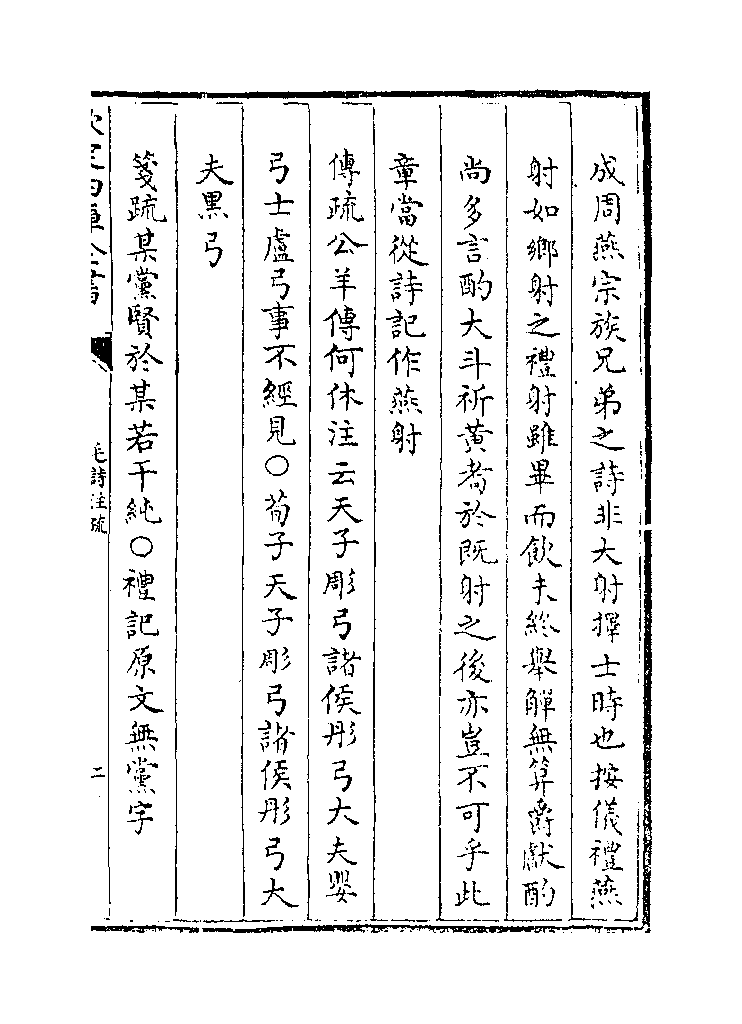 成周燕宗族兄弟之詩非大射擇士時也按儀禮燕
射如鄉射之禮射雖畢而飲未終舉觶無算爵獻酌
尚多言酌大斗祈黃耇於既射之後亦豈不可乎此
章當從詩記作燕射
傳疏公羊傳何休注云天子彫弓諸侯彤弓大夫嬰
弓士盧弓事不經見○荀子天子彫弓諸侯彤弓大
夫黑弓
箋疏某黨賢於某若干純○禮記原文無黨字
欽定四庫全書
毛詩注疏
二